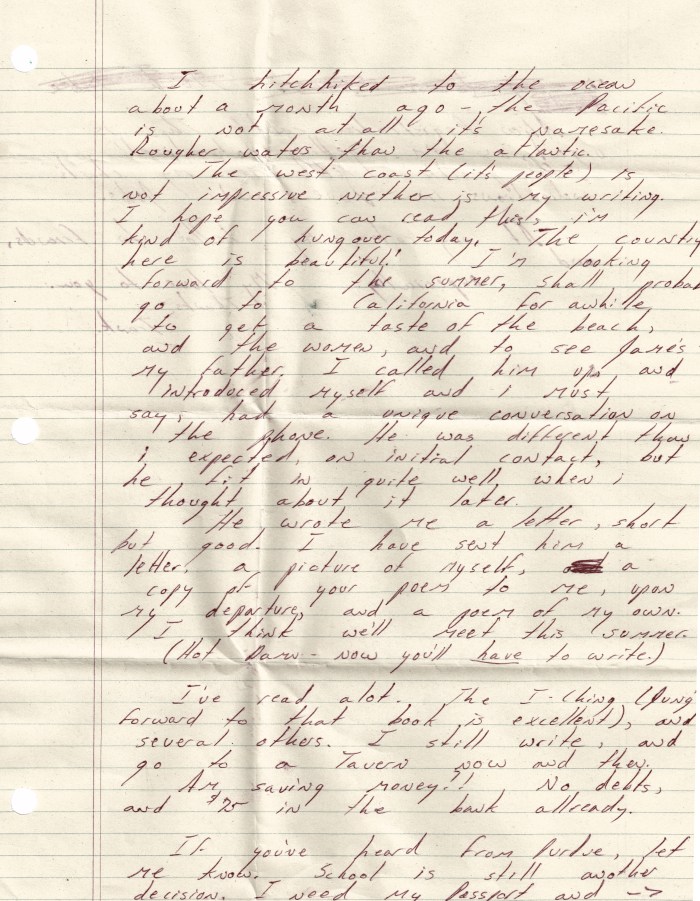 I hitchhiked to the ocean
about a month ago - the Pacific
is not at all it's namesake.
Rougher waters than the atlantic.
The west coast (it's people) is
not impressive niether is my writing.
I hope you can read this, i'm
kind of hungover today. The country
here is beautiful! I'm looking
forward to the summer, shall probab
go to California for awhile
to get a taste of the beach,
and the women, and to see James
my father. I called him up, and
introduced myself and i must
say, had a unique conversation on
the phone. He was different than
i expected, on initial contact, but
he fit in quite well when i
thought about it later.
He wrote me a letter, short
but good. I have sent him a
letter, a picture of myself, a
copy of your poem to me, upon
my departure, and a poem of my own.
I think we'll meet this summer.
(Hot Damn - now you'll have to write.)
I've read alot. The I-Ching (Jung
forward to that book is excellent), and
several others. I still write, and
go to a Tavern now and then.
Am saving money!! No debts,
and $25 in the bank allready.
If you've heard from Purdue, let
me know. School is still another
decision. I need my Passport and →